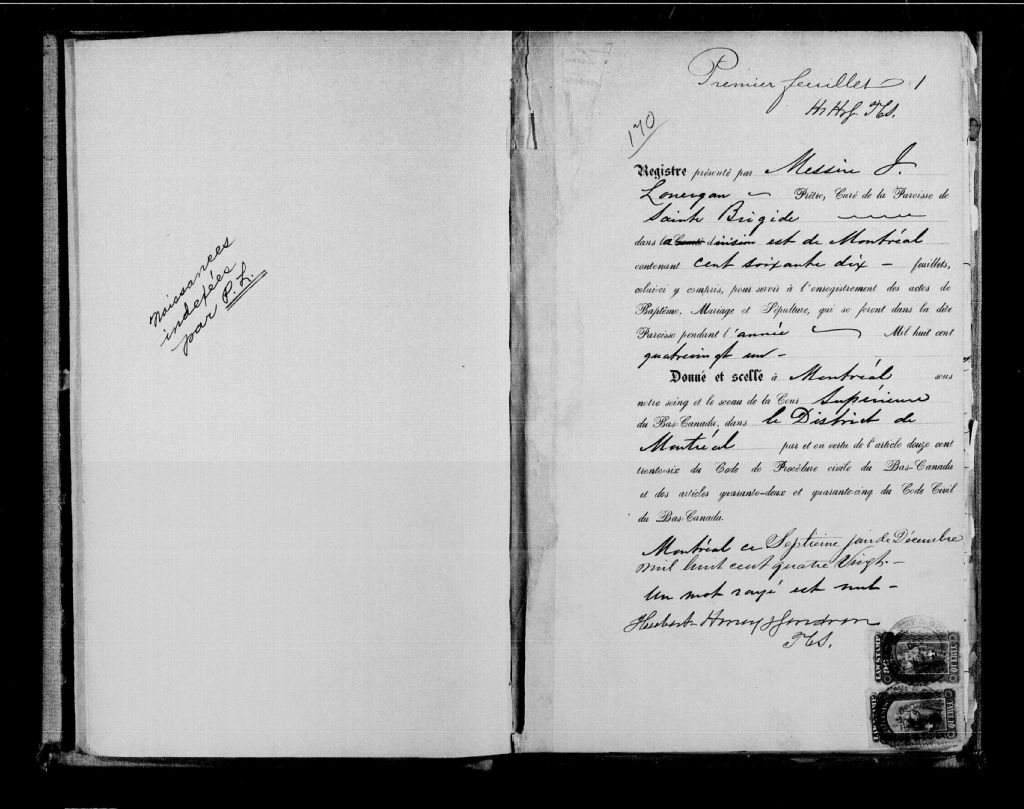 Naissances
indexées
par P. L.
Premier feuillet 1
HHG. P.C.S.
170
Registre présenté par Messire J.
Lonergan Prêtre, Curé de la Paroisse de
Sainte Brigide
dans la division est de Montréal
contenant cent soixante dix - feuillets,
celui-ci y compris, pour servir à l'enregistrement des actes de
Baptême, Mariage et Sépulture, qui se feront dans la dite
Paroisse pendant l'année Mil huit cent
quatrevingt un -
Donné et scellé à Montréal sous
notre seing et le sceau de la Cour Supérieure
du Bas-Canada, dans le District de
Montréal par et en vertu de l'article douze cent
trente-six du Code de Procédure civile du Bas-Canada
et des articles quarante-deux et quarante-cinq du Code Civil
du Bas-Canada.
Montréal ce Septième jour de Décembre
mil huit cent quatre Vingt. -
Un mot rayé est nul -
LAW STAMP
QUEBEC
LAW STAMP
QUEBEC